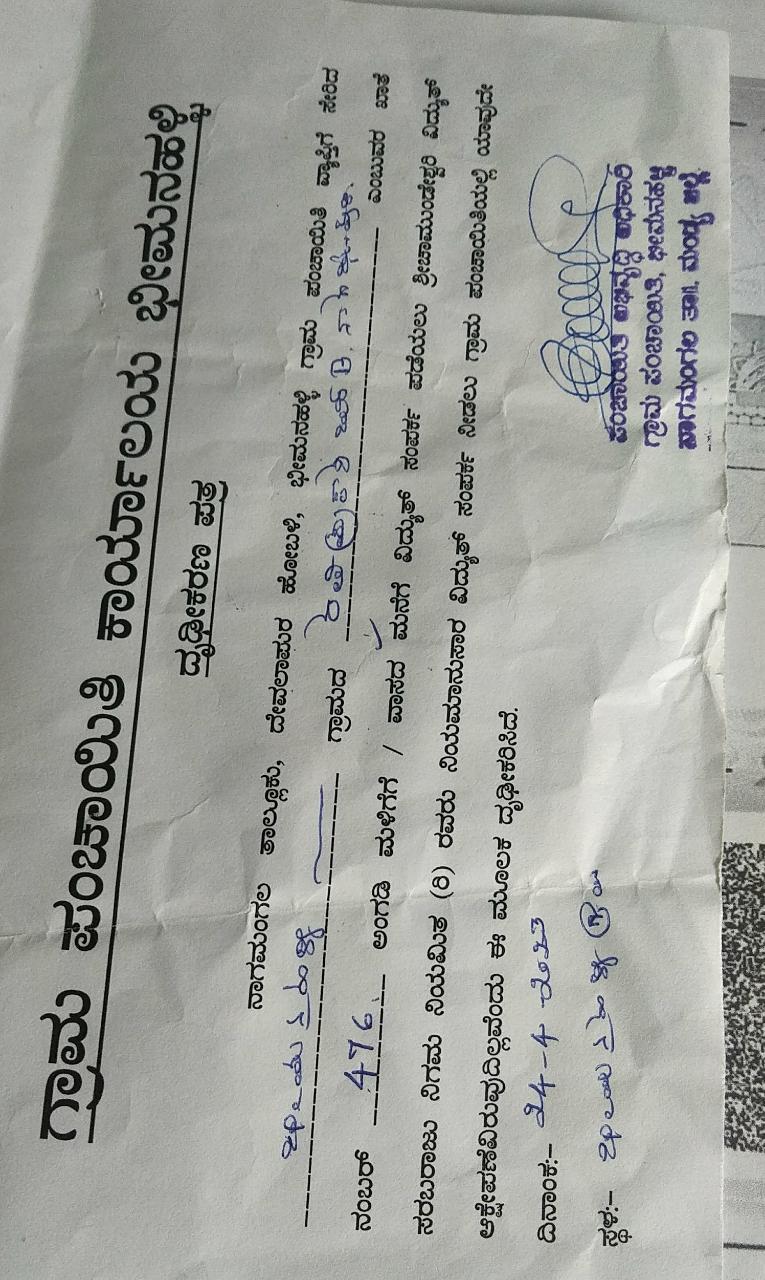 ಗ್ರಾಮ ಪಂಚಾಯಿತಿ ಕಾರ್ಯಾಲಯ ಭೀಮನಹಳ್ಳಿ
ದೃಢೀಕರಣ ಪತ್ರ
ನಾಗಮಂಗಲ ತಾಲ್ಲೂಕು, ದೇವಲಾಪುರ ಹೋಬಳಿ, ಭೀಮನಹಳ್ಳಿ ಗ್ರಾಮ ಪಂಚಾಯಿತಿ ವ್ಯಾಪ್ತಿಗೆ ಸೇರಿದ
ಭೀಮನಹಳ್ಳಿ ಗ್ರಾಮದ ಎಂಬುವರ ಖಾತೆ
ನಂಬರ್ 476 ಅಂಗಡಿ ಮಳಿಗೆಗೆ / ವಾಸದ ಮನೆಗೆ ವಿದ್ಯುತ್ ಸಂಪರ್ಕ ಪಡೆಯಲು ಶ್ರೀಚಾಮುಂಡೇಶ್ವರಿ ವಿದ್ಯುತ್
ಸರಬರಾಜು ನಿಗಮ ನಿಯಮಿತ (ರಿ) ರವರು ನಿಯಮಾನುಸಾರ ವಿದ್ಯುತ್ ಸಂಪರ್ಕ ನೀಡಲು ಗ್ರಾಮ ಪಂಚಾಯಿತಿಯಲ್ಲಿ ಯಾವುದೇ
ಆಕ್ಷೇಪಣೆವಿರುವುದಿಲ್ಲವೆಂದು ಈ ಮೂಲಕ ದೃಢೀಕರಿಸಿದೆ.
ದಿನಾಂಕ:- 24-4-2023
ಸ್ಥಳ:- ಭೀಮನಹಳ್ಳಿ
ಪಂಚಾಯಿತಿ ಅಭಿವೃದ್ಧಿ ಅಧಿಕಾರಿ
ಗ್ರಾಮ ಪಂಚಾಯಿತಿ, ಭೀಮನಹಳ್ಳಿ
ನಾಗಮಂಗಲ ತಾ॥, ಮಂಡ್ಯ ಜಿಲ್ಲೆ.